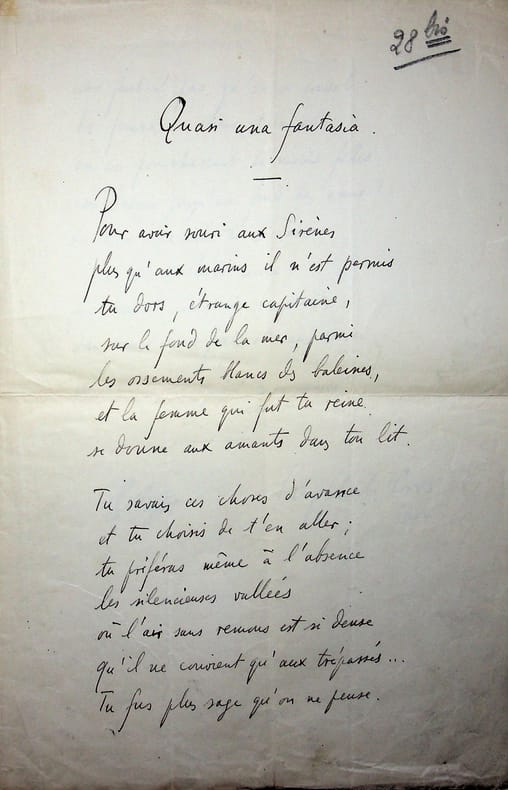 28 bis
Quasi una fantasia.
Pour avoir souri aux Sirènes
plus qu'aux marins il n'est permis
tu dors, étrange capitaine,
sur le fond de la mer, parmi
les ossements blancs des baleines,
et la femme qui fut ta reine
se donne aux amants dans ton lit.
Tu savais ces choses d'avance
et tu choisis de t'en aller ;
tu préféras même à l'absence
les silencieuses vallées
où l'air sans remous est si dense
qu'il ne convient qu'aux trépassés...
Tu fus plus sage qu'on ne pense.